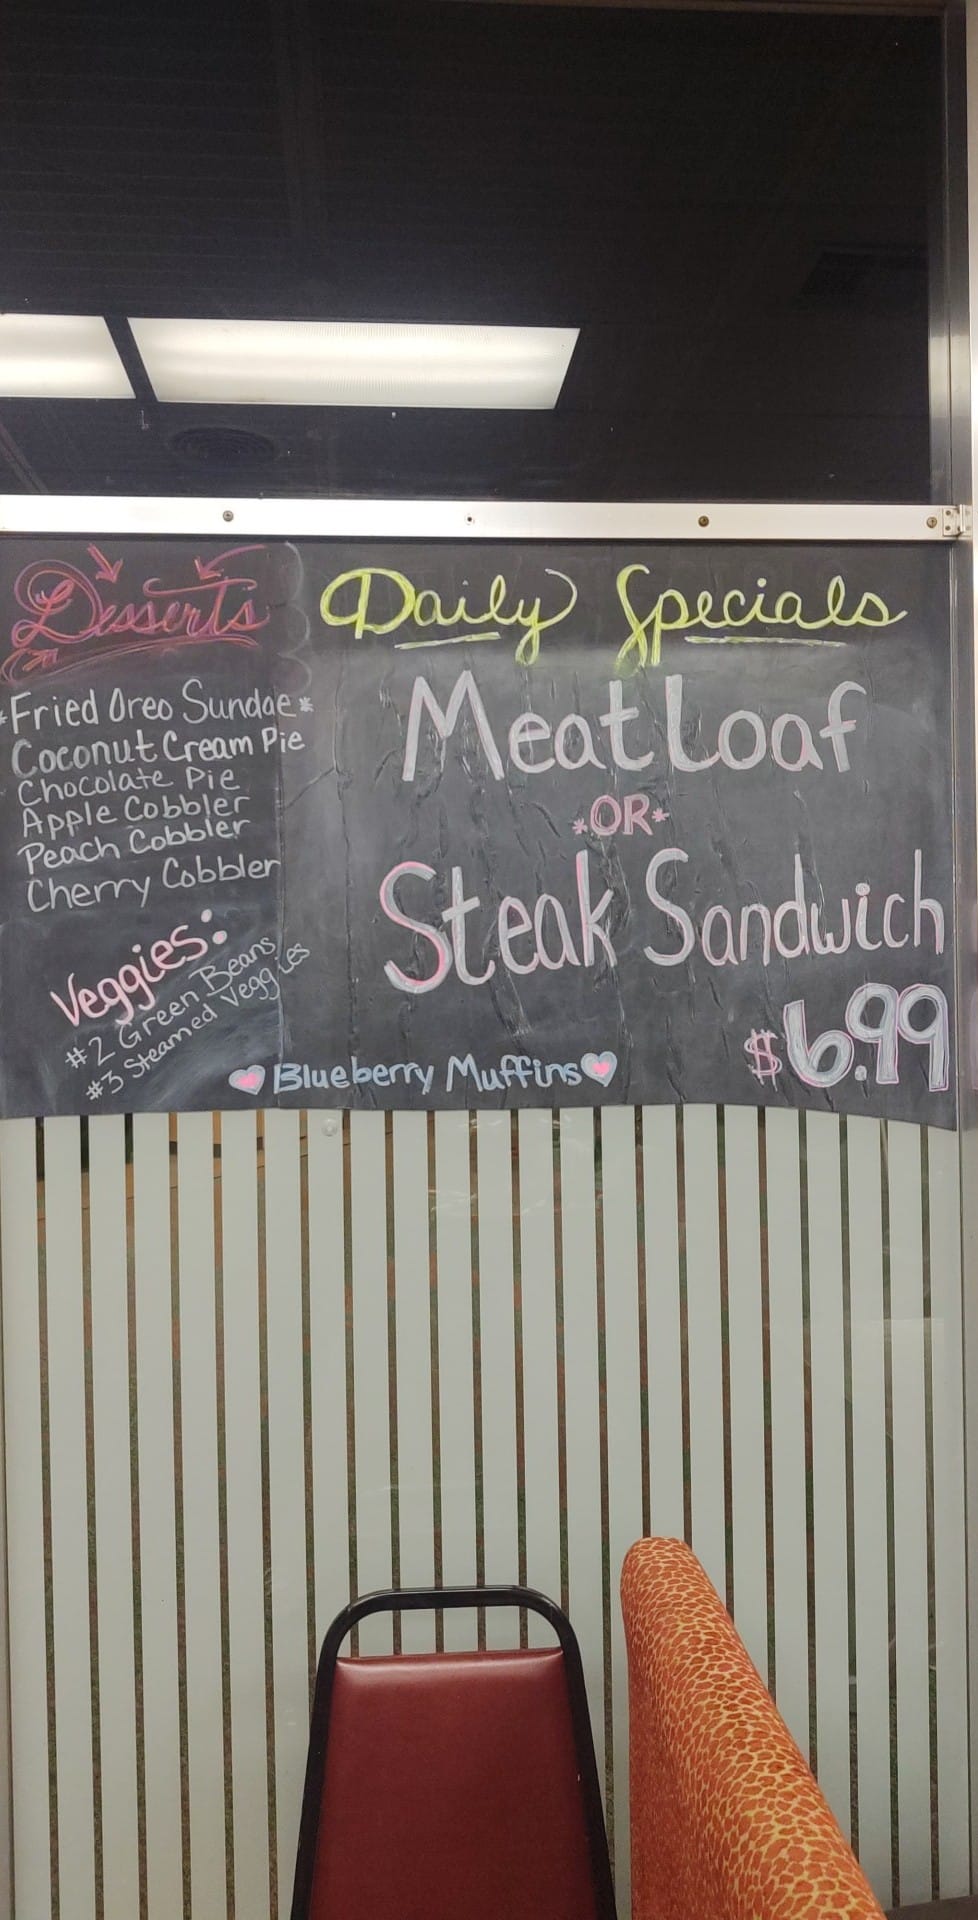 Desserts
*Fried Oreo Sundae*
Coconut Cream Pie
Chocolate Pie
Apple Cobbler
Peach Cobbler
Cherry Cobbler
Veggies:
#2 Green Beans
#3 Steamed Veggies
Daily Specials
Meat Loaf
*OR*
Steak Sandwich
$6.99
Blueberry Muffins